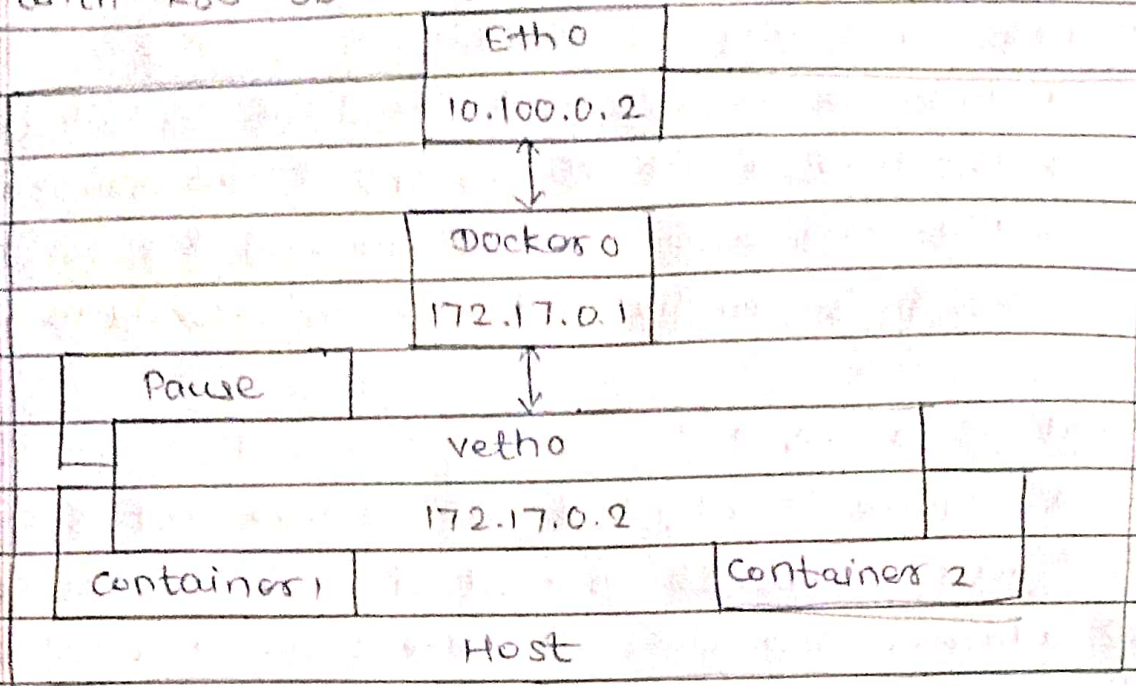 Eth0
10.100.0.2
Docker0
172.17.0.1
Pause
veth0
172.17.0.2
Container1
Container 2
Host